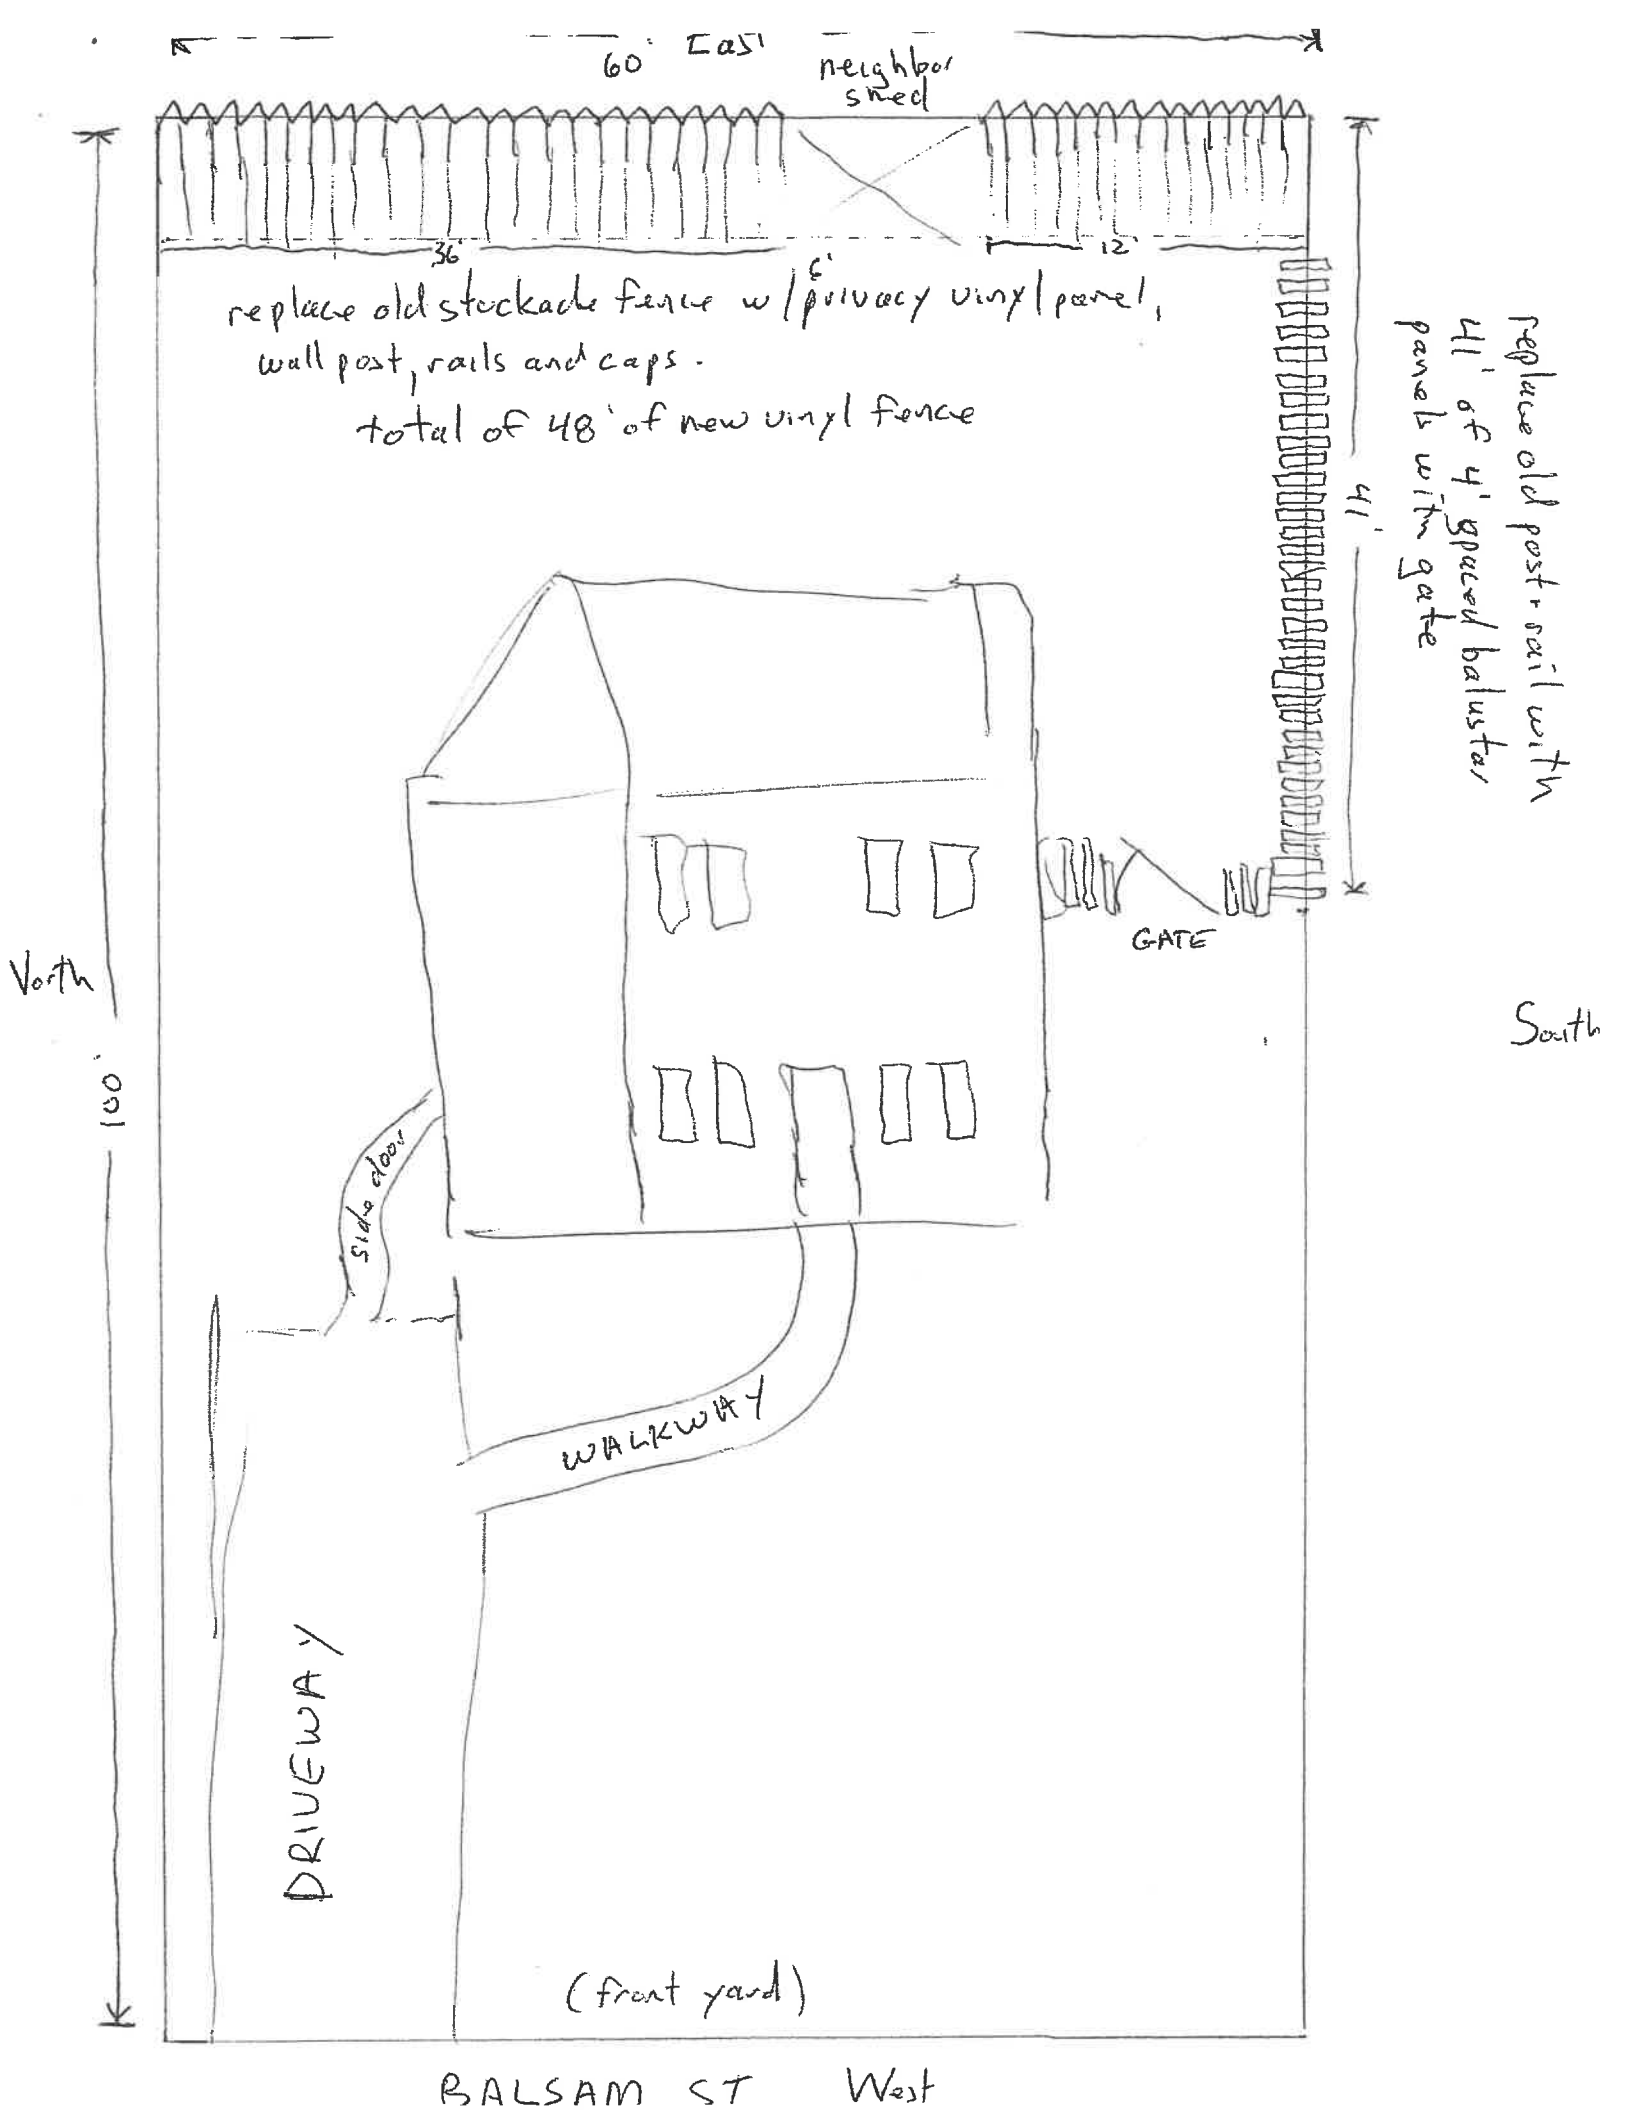 60' East
neighbor
shed
36'
12'
6'
replace old stockade fence w/ privacy vinyl panel,
wall post, rails and caps.
total of 48' of new vinyl fence
replace old post + rail with
41' of 4' spaced balustar
panels with gate
41'
GATE
North
South
100'
side door
WALKWAY
DRIVEWAY
(front yard)
BALSAM ST West